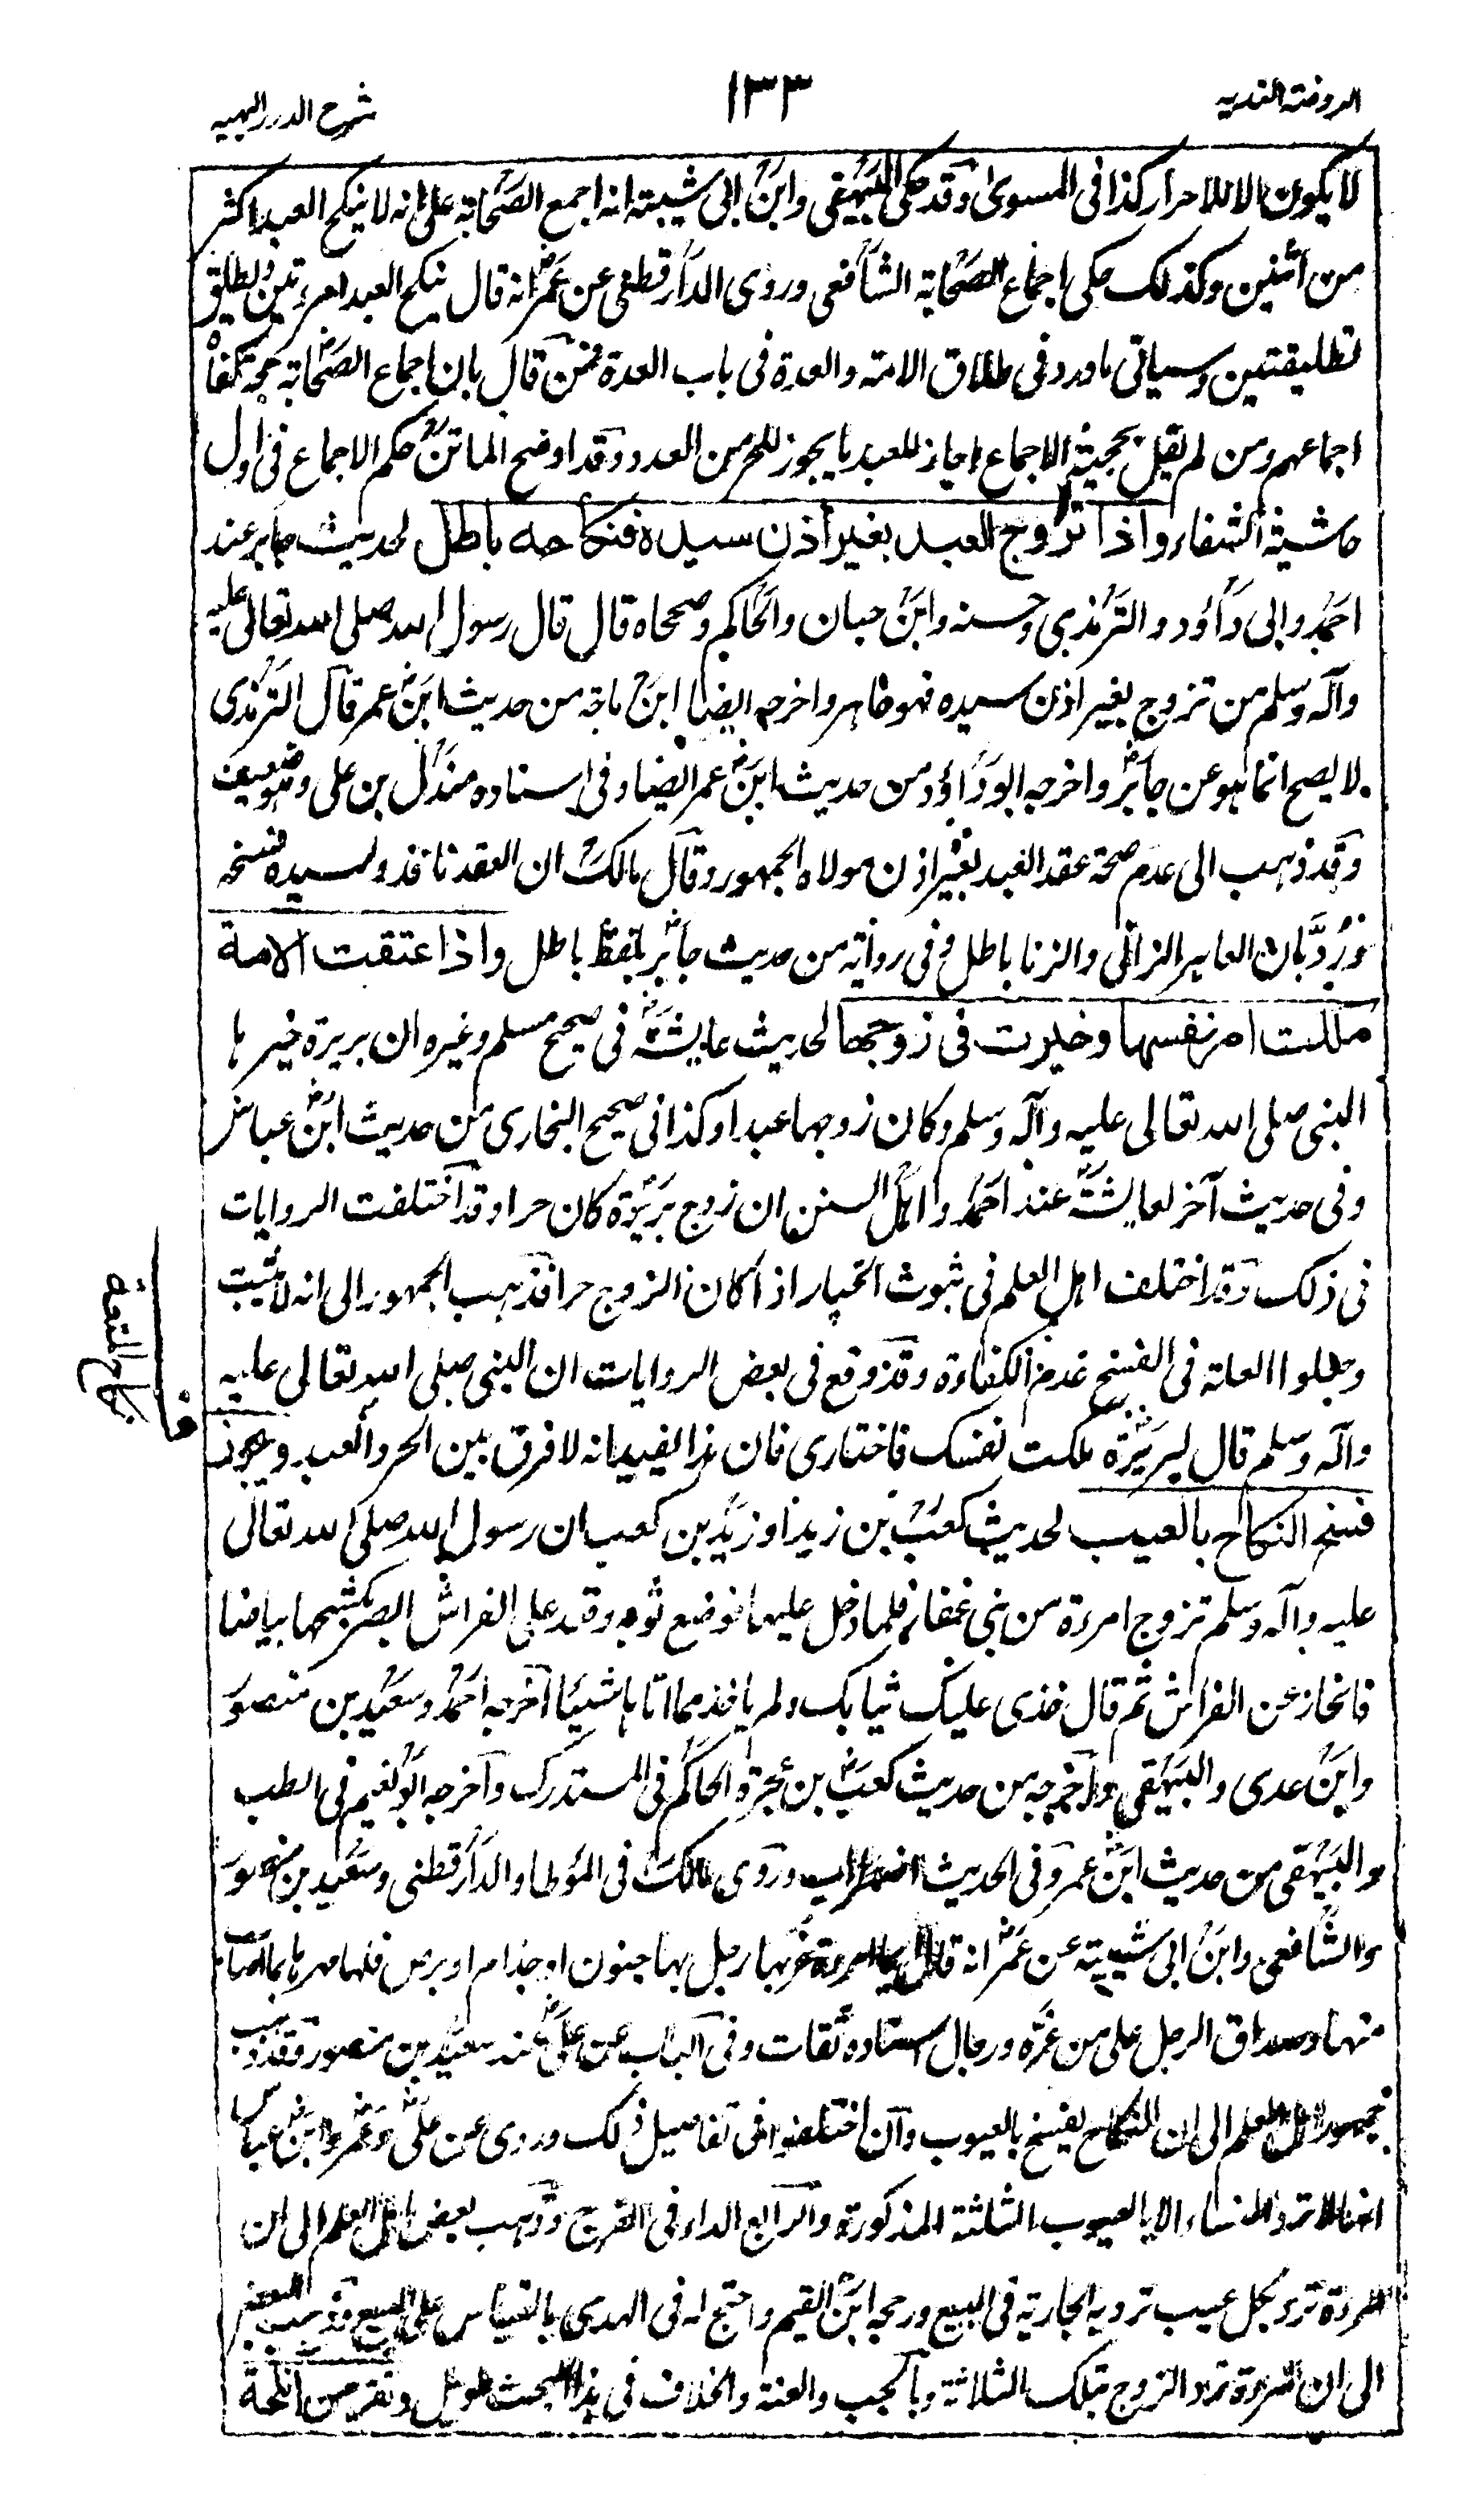 الروضة الندية
١٣٣
شرح الدرر البهية
لا يكون الا للاحرار كذا فى المسوى وقد حكى البيهقى وابن ابى شيبة انه اجمع الصحابة على انه لا ينكح العبد اكثر
من اثنين وكذلك حكى اجماع الصحابة الشافعى وروى الدارقطنى عن عمر انه قال ينكح العبد امرءتين ويطلق
تطليقتين وسياتى ما ورد فى طلاق الامة والعدة فى باب العدة فمن قال بان اجماع الصحابة حجة كفاه
اجماعهم ومن لم يقل بحجية الاجماع اجاز للعبد ما يجوز للحر من العدد وقد اوضح الماتن حكم الاجماع فى اول
حاشية الشفاء واذا تزوج العبد بغير اذن سيده فنكاحه باطل لحديث جابر عند
احمد وابى داؤد والترمذى وحسنه وابن حبان والحاكم وصححاه قال قال رسول الله صلى الله تعالى عليه
وآله وسلم من تزوج بغير اذن سيده فهو عاهر واخرجه ايضا ابن ماجة من حديث ابن عمر قال الترمذى
لا يصح انما هو عن جابر واخرجه ابو داؤد من حديث ابن عمر ايضا وفى اسناده مندل بن على وهو ضعيف
وقد ذهب الى عدم صحة عقد العبد بغير اذن مولاه الجمهور وقال مالك ان العقد نافذ ولسيده فسخه
ورد بان العاهر الزانى والزنا باطل وفى رواية من حديث جابر بلفظ باطل واذا عتقت الامة
ملكت امر نفسها وخيرت فى زوجها لحديث عايشة فى صحيح مسلم وغيره ان بريرة خيرها
النبى صلى الله تعالى عليه وآله وسلم وكان زوجها عبدا وكذا فى صحيح البخارى من حديث ابن عباس
وفى حديث آخر لعايشة عند احمد واهل السنن ان زوج بريرة كان حرا وقد اختلفت الروايات
فى ذلك وقد اختلف اهل العلم فى ثبوت الخيار اذا كان الزوج حرا فذهب الجمهور الى انه لا يثبت
وجعلوا العلة فى الفسخ عدم الكفاءة وقد وقع فى بعض الروايات ان النبى صلى الله تعالى عليه
وآله وسلم قال لبريرة ملكت نفسك فاختارى فان هذا يفيد انه لا فرق بين الحر والعبد ويجوز
فسخ النكاح بالعيب لحديث كعب بن زيد او زيد بن كعب ان رسول الله صلى الله تعالى
عليه وآله وسلم تزوج امرءة من بنى غفار فلما دخل عليها فوضع ثوبه وقعد على الفراش ابصر بكشحها بياضا
فانحاز عن الفراش ثم قال خذى عليك ثيابك ولم ياخذ مما اتاها شيئا اخرجه احمد وسعيد بن منصور
وابن عدى والبيهقى واخرجه من حديث كعب بن عجرة الحاكم فى المستدرك واخرجه ابو نعيم فى الطب
والبيهقى من حديث ابن عمر وفى الحديث اضطراب وروى مالك فى الموطا والدارقطنى وسعيد بن منصور
والشافعى وابن ابى شيبة عن عمر انه قال ايما امرءة غر بها رجل بها جنون او جذام او برص فلها مهرها بما اصاب
منها وصداق الرجل على من غره ورجال اسناده ثقات وفى الباب عن على عند سعيد بن منصور وقد ذهب
جمهور اهل العلم الى ان النكاح يفسخ بالعيوب وان اختلفوا فى تفاصيل ذلك وروى عن على وعمر وابن عباس
انها لا ترد النساء الا بالعيوب الثلثة المذكورة والرابع الداء فى الفرج وذهب بعض اهل العلم الى ان
المرءة ترد بكل عيب ترد به الجارية فى البيع ورجحه ابن القيم واحتج له فى الهدى بالقياس على البيع وذهب البعض
الى ان المرءة ترد الزوج بتلك الثلاثة وبالجب والعنة والخلاف فى هذا البحث طويل ونقر من انكحة